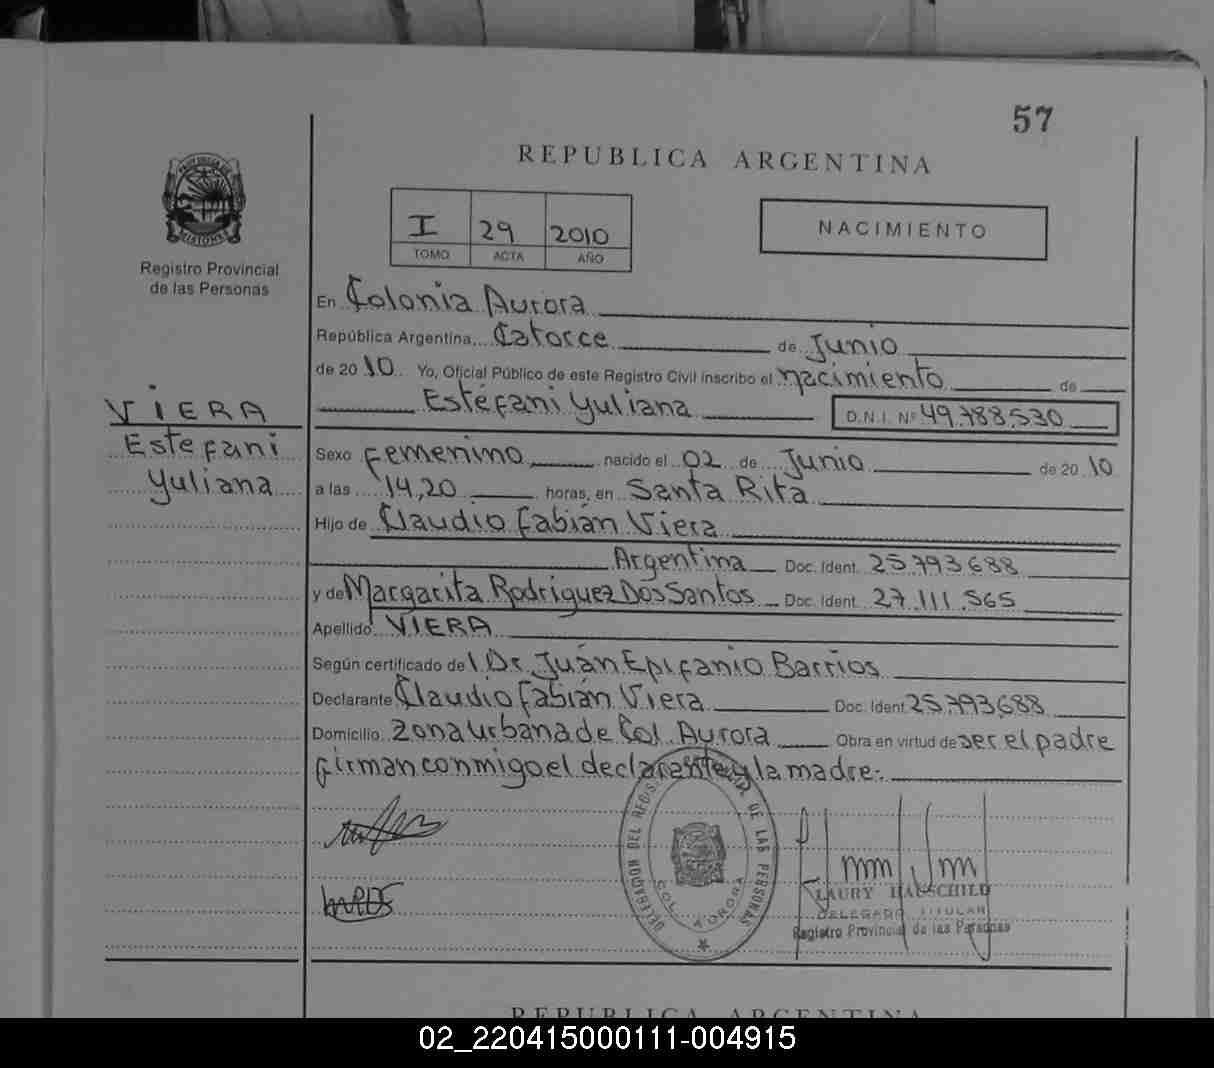 57
REPUBLICA ARGENTINA
I 29 2010
TOMO ACTA AÑO
NACIMIENTO
MISIONES
Registro Provincial
de las Personas
En Colonia Aurora
República Argentina, Catorce de Junio
de 2010 Yo, Oficial Público de este Registro Civil inscribo el nacimiento de
Estéfani Yuliana D.N.I. Nº 49.788.530
VIERA
Estefani
Yuliana
Sexo Femenino nacido el 02 de Junio de 2010
a las 14,20 horas, en Santa Rita
Hijo de Claudio Fabián Viera
Argentina Doc. Ident. 25.793.688
y de Margarita Rodriguez Dos Santos Doc. Ident. 27.111.565
Apellido VIERA
Según certificado del Dr. Juán Epifanio Barrios
Declarante Claudio Fabián Viera Doc. Ident. 25.793.688
Domicilio zona urbana de Col. Aurora Obra en virtud de ser el padre
firman conmigo el declarante y la madre.-
DE LAS PERSONAS
COL. AURORA
LAURY HAUSCHILD
DELEGADO TITULAR
Registro Provincial de las Personas
REPUBLICA ARGENTINA
02_220415000111-004915